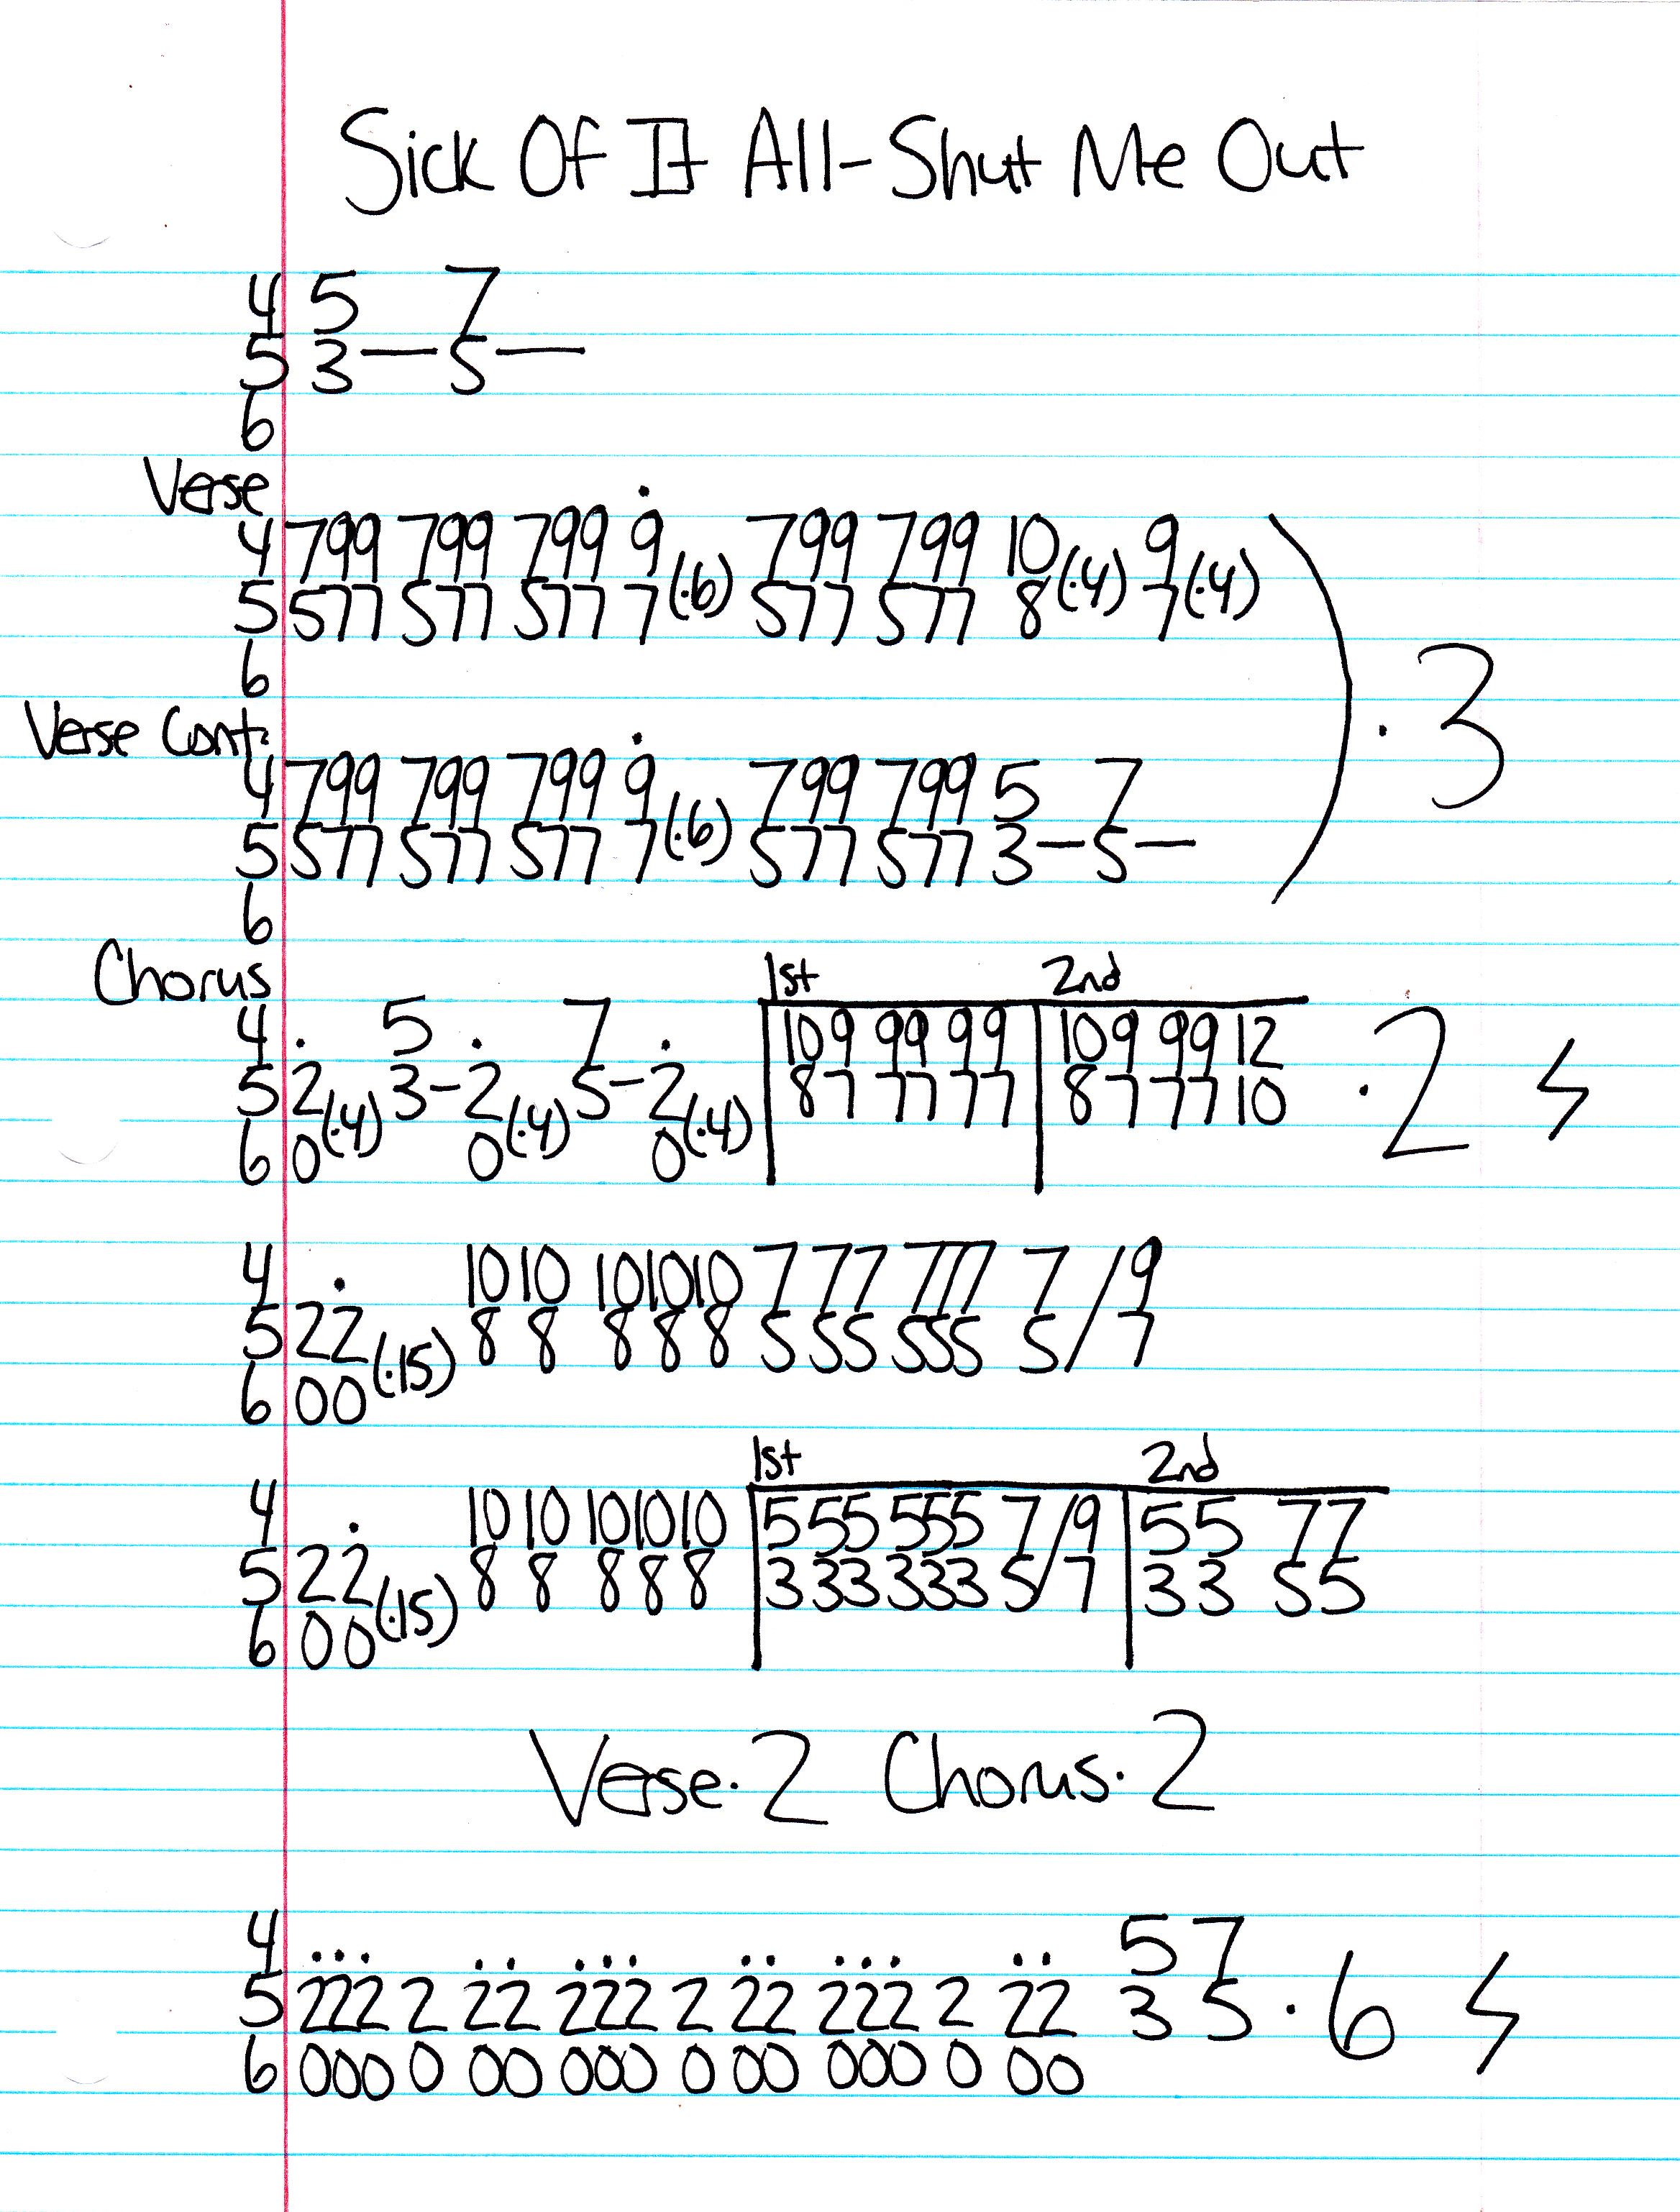 Sick Of It All - Shut Me Out
4 5 7
5 3 — 5 —
6
Verse
4 799 799 799 9 799 799 10 9
5 577 577 577 7 (·6) 577 577 8 (·4) 7 (·4)
6
) · 3
Verse Cont.
4 799 799 799 9 799 799 5 7
5 577 577 577 7 (·6) 577 577 3 — 5 —
6
Chorus 1st 2nd
4 5 7 | 109 99 99 | 109 99 12
5 2 (·4) 3 - 2 (·4) 5 - 2 (·4) | 87 77 77 | 87 77 10 · 2
6 0 0 0
4 10 10 10 10 10 7 77 777 7 / 9
5 22 (·15) 8 8 8 8 8 5 55 555 5 / 7
6 00
1st 2nd
4 10 10 10 10 10 | 5 55 555 7 / 9 | 55 77
5 22 (·15) 8 8 8 8 8 | 3 33 333 5 / 7 | 33 55
6 00
Verse · 2 Chorus · 2
4 ... .. ... .. ... .. 5 7
5 222 2 22 222 2 22 222 2 22 3 5 · 6
6 000 0 00 000 0 00 000 0 00